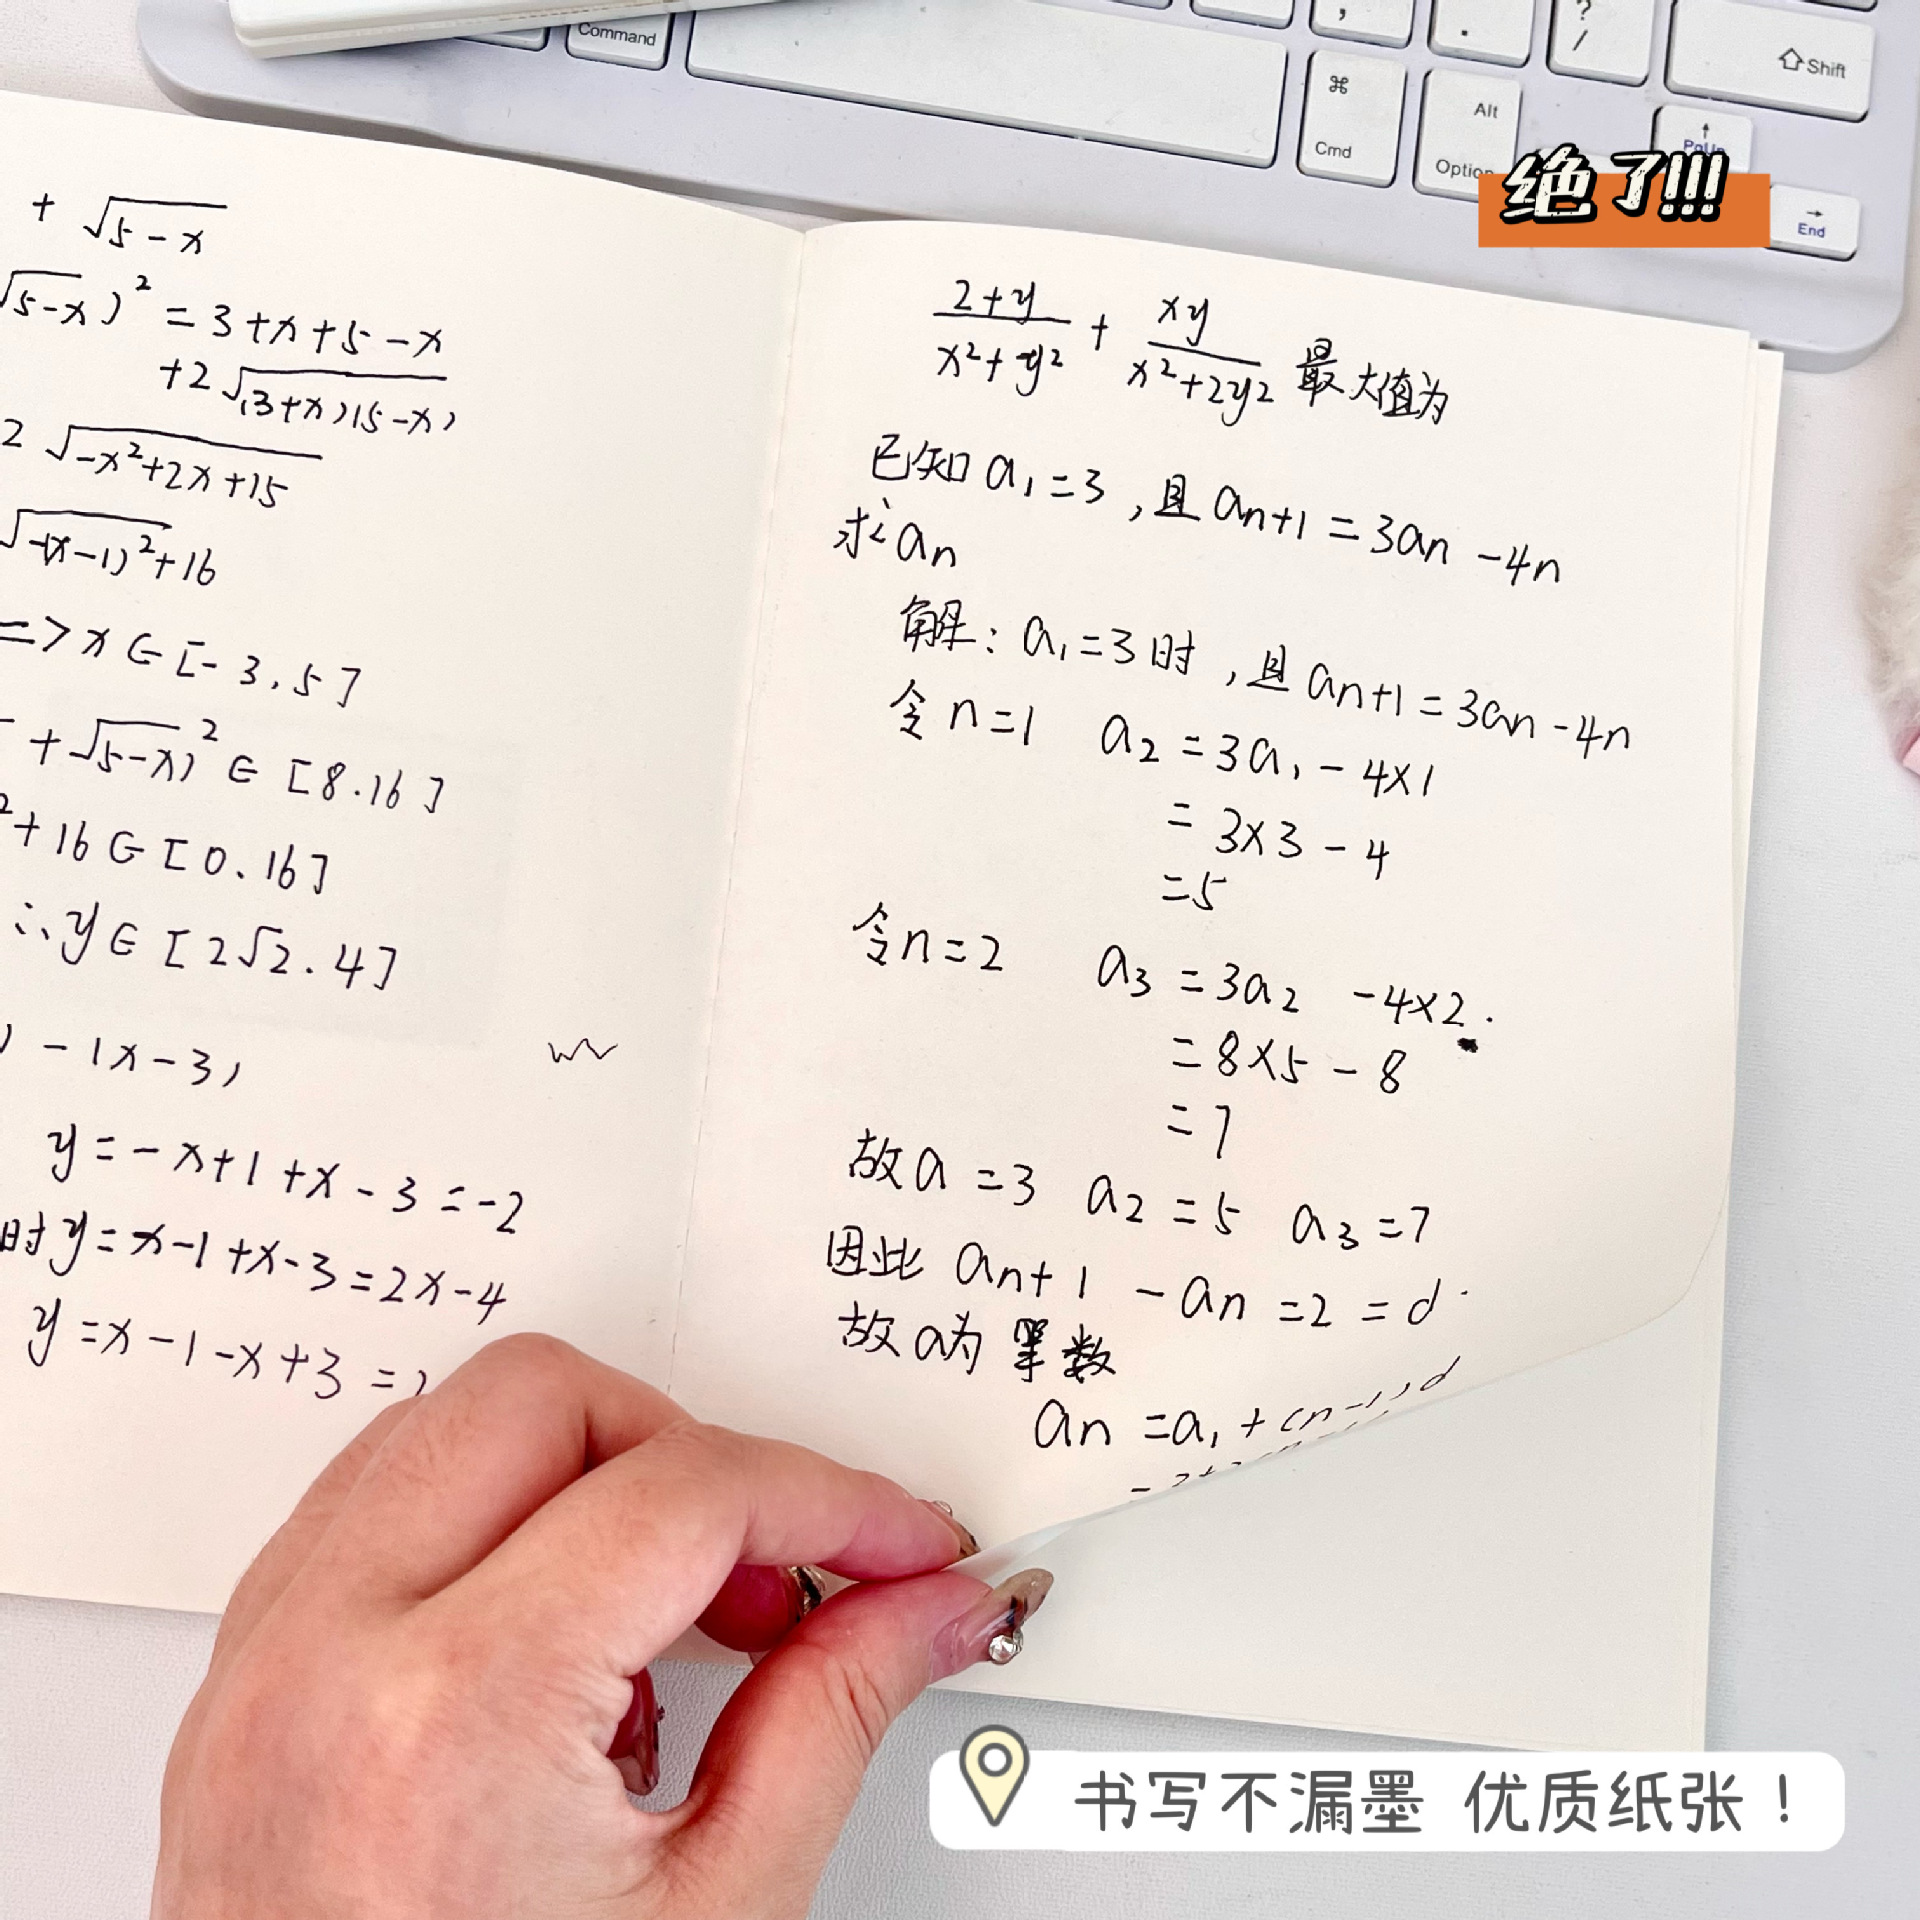 Command
,
.
?
/
⇧ Shift
⌘
Cmd
Alt
Option
PgUp
End
绝了!!!
+ √5-x
√5-x)² = 3+x+5-x
+2√(3+x)(5-x)
2√-x²+2x+15
√-(x-1)²+16
=> x ∈ [-3,5]
+√5-x)² ∈ [8.16]
²+16 ∈ [0.16]
∴ y ∈ [2√2.4]
) - (x-3)
y = -x+1+x-3 = -2
时 y = x-1+x-3 = 2x-4
y = x-1-x+3 =
2+y/x²+y² + xy/x²+2y² 最大值为
已知 a₁=3,且 an+1 = 3an -4n
求 an
解: a₁=3时,且 an+1 = 3an-4n
令 n=1 a₂ = 3a₁ - 4×1
= 3×3 - 4
=5
令 n=2 a₃ = 3a₂ -4×2.
= 8×5 - 8
= 7
故 a =3 a₂ = 5 a₃ =7
因此 an+1 - an = 2 = d.
故 a为 等数
an = a₁ + (n-1)d
书写不漏墨 优质纸张!